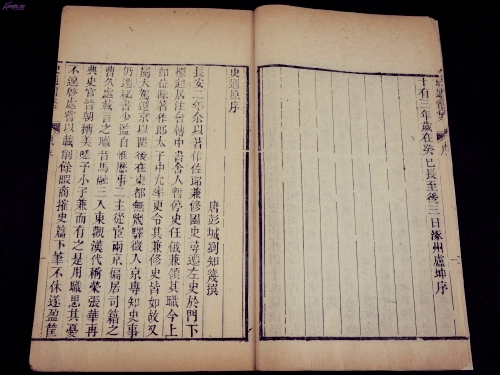 十有三年歲在癸巳長至後三日涿州盧坤序
史通原序
唐彭城劉知幾撰
長安二年余以著作佐郎兼修國史尋遷左史於門下
撰起居注會轉中書舍人暫停史任俄兼領其職今上
即位除著作郎太子中允率更令其兼修史皆如故又
屬大駕還京以留後在東都無幾驛徵入京專知史事
仍遷秘書少監自惟歷事二主從宦兩京徧居司籍之
曹久處載言之職昔馬融三入東觀漢代稱榮張華再
典史官晉朝稱美嗟予小子兼而有之是用職思其憂
不遑啟處嘗以載削餘暇商搉史篇下筆不休遂盈筐